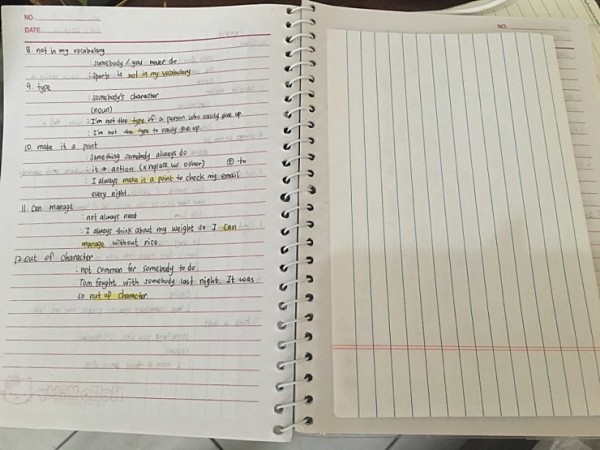 NO.
DATE
8. not in my vocabulary
: somebody / you never do
: Sports is not in my vocabulary
9. type
: somebody's character
(noun)
: I'm not the type of a person who easily give up
: I'm not the type to easily give up.
10. make it a point
: something somebody always do
: it → action (x replace w/ other) to
: I always make it a point to check my email
every night.
11. can manage
: not always need
: I always think about my weight so I can
manage without rice.
12. out of character
: not common for somebody to do.
Tom fought with somebody last night. It was
so out of character.
NO.